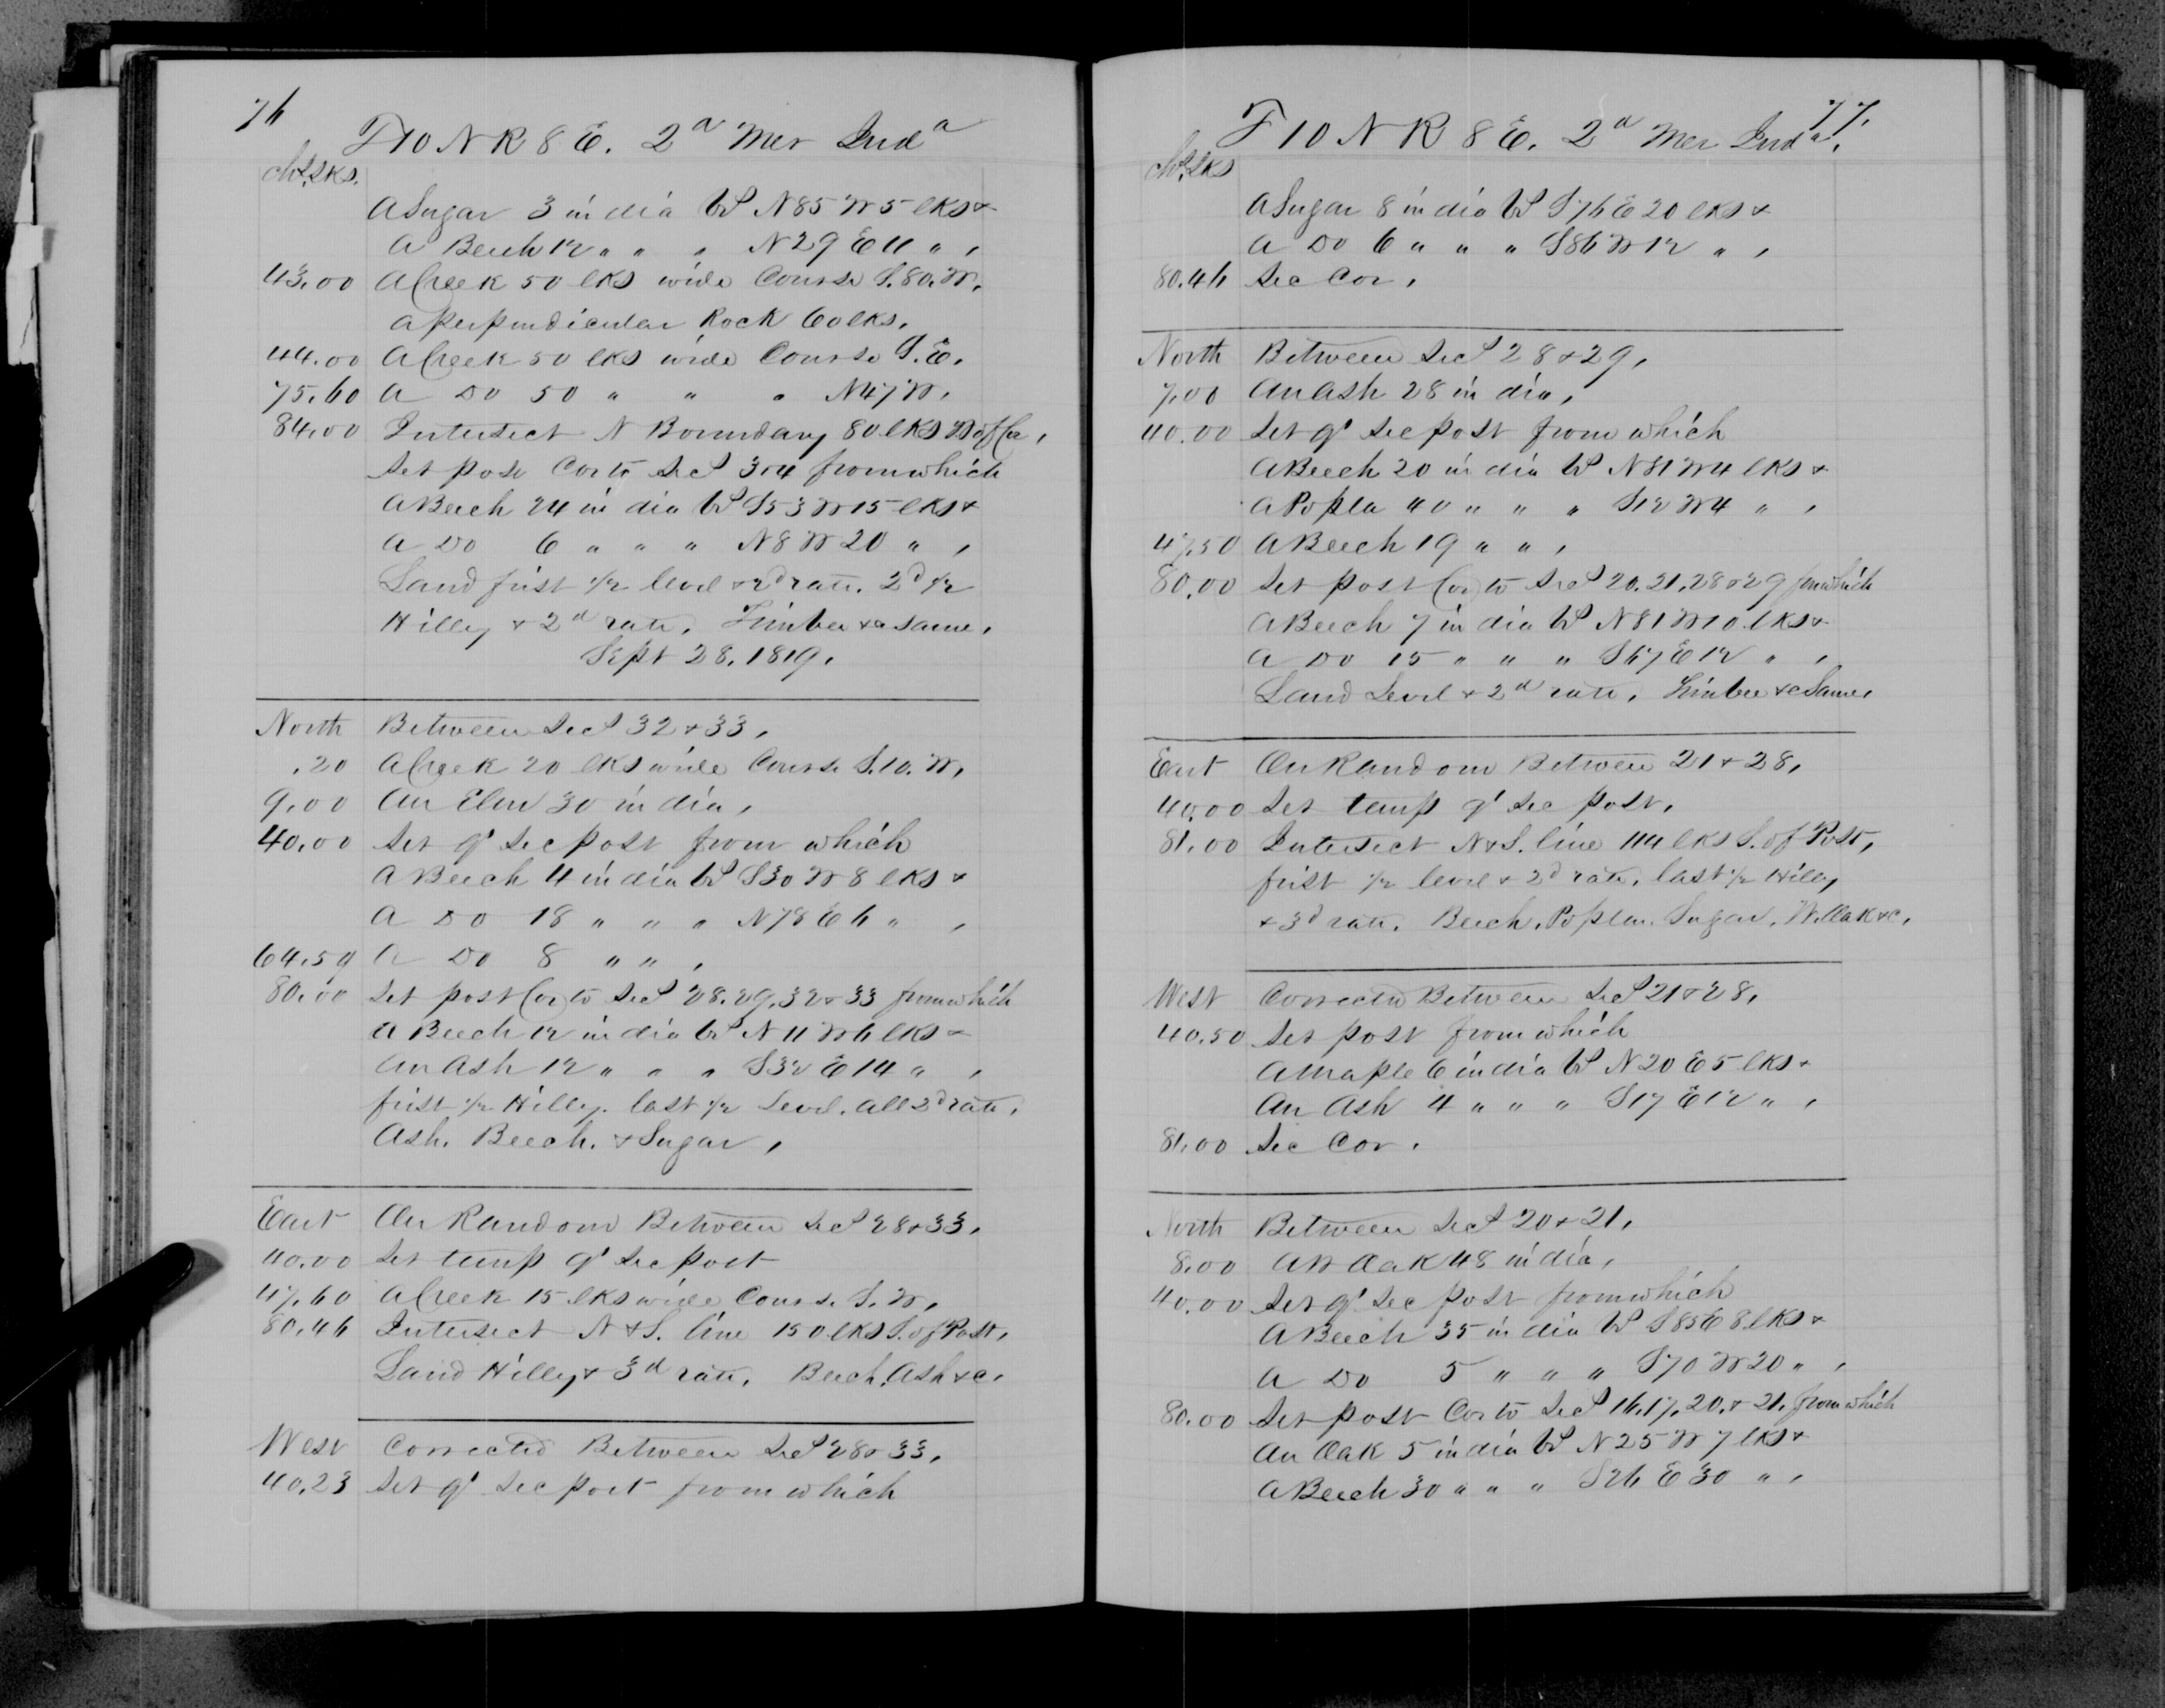 76
T10 N R 8 E. 2d Mer Inda
chs.lks.
A Sugar 3 in dia bS N85 W 5 lks &
A Beech 12 " " " N29 E 11 " ,
43,00 A Creek 50 lks wide Course S.80.W,
a perpendicular Rock 60 lks,
44.00 A Creek 50 lks wide Course S.E,
75,60 A Do 50 " " " N47W,
84,00 Intersect N Boundary 80 lks W of Cor,
Set post Cor to SecS 3&4 from which
A Beech 24 in dia bS S53 W 15 lks &
A Do 6 " " " N8 W 20 " ,
Land first 1/2 level & 2d rate. 2d 1/2
Hilly & 2d rate, Timber &c same,
Sept 28, 1819,
North Between SecS 32 & 33,
,20 A Creek 20 lks wide Course S.10.W,
9,00 An Elm 30 in dia,
40,00 Set qr Sec post from which
A Beech 4 in dia bS S30 W 8 lks &
A Do 18 " " " N78 E 6 " ,
64,59 A Do 8 " " ,
80,00 Set post Cor to SecS 28,29,32 & 33 from which
A Beech 12 in dia bS N 11 W 6 lks &
An Ash 12 " " " S32 E 14 " ,
first 1/2 Hilly. last 1/2 Level. all 2d rate,
Ash. Beech. & Sugar,
East On Random Between SecS 28 & 33,
40,00 Set temp qr Sec post
47,60 A Creek 15 lks wide Course S.W,
80,46 Intersect N & S. line 150 lks S. of Post,
Land Hilly & 3d rate, Beech, Ash &c,
West Corrected Between SecS 28 & 33,
40,23 Set qr Sec post from which
77,
T 10 N R 8 E. 2d Mer Inda,
chs.lks
A Sugar 8 in dia bS S76 E 20 lks &
A Do 6 " " " S86 W 12 " ,
80.46 Sec Cor,
North Between SecS 28 & 29,
7,00 An Ash 28 in dia,
40.00 Set qr Sec post from which
A Beech 20 in dia bS N81 W 4 lks &
A Popla 40 " " " S12 W 4 " ,
47,50 A Beech 19 " " ,
80,00 Set post Cor to SecS 20,21,28 & 29 from which
A Beech 7 in dia bS N81 W 10 lks &
A Do 15 " " " S67 E 12 " ,
Land Level & 2d rate, Timber &c Same,
East On Random Between 21 & 28,
40,00 Set temp qr Sec post,
81,00 Intersect N & S. line 114 lks S. of Post,
first 1/2 level & 2d rate, last 1/2 Hilly
& 3d rate. Beech, Poplar. Sugar, W. Oak &c,
West Corrected Between SecS 21 & 28,
40,50 Set post from which
A Maple 6 in dia bS N20 E 5 lks &
An Ash 4 " " " S17 E 12 " ,
81,00 Sec Cor,
North Between SecS 20 & 21,
8,00 A W Oak 48 in dia,
40,00 Set qr Sec post from which
A Beech 35 in dia bS S85 E 8 lks &
A Do 5 " " " S70 W 20 " ,
80.00 Set post Cor to SecS 16,17,20, & 21, from which
An Oak 5 in dia bS N25 W 7 lks &
A Beech 30 " " " S26 E 30 " ,